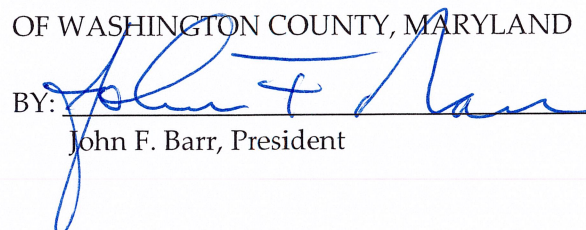 OF WASHINGTON COUNTY, MARYLAND
BY: John F Barr
John F. Barr, President